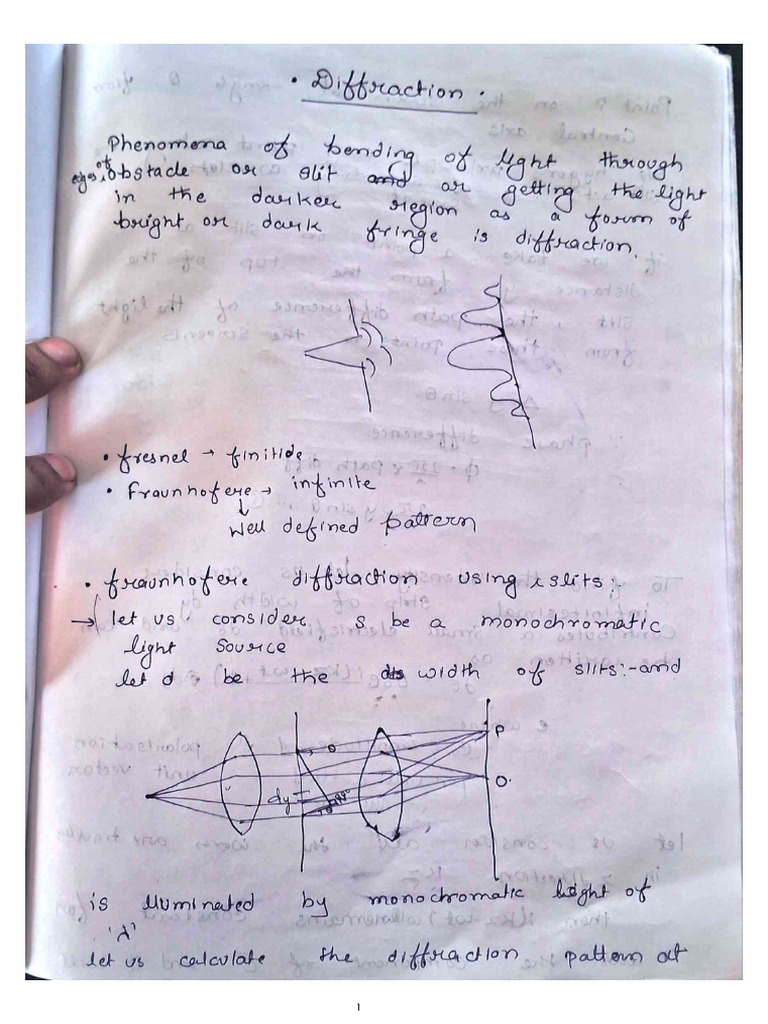 • Diffraction •
Phenomena of bending of light through
eges of obstacle or slit or getting the light
in the darker region as a form of
bright or dark fringe is diffraction.
• fresnel → finitide
• Fraunhofere → infinite
↓
Well defined pattern
• fraunhofere diffraction using slits:
→ let us consider s be a monochromatic
light source
let d be the width of slits:-and
θ
P
dy
θ
90°
O.
is illuminated by monochromatic light of
'λ'
let us calculate the diffraction pattern at
1